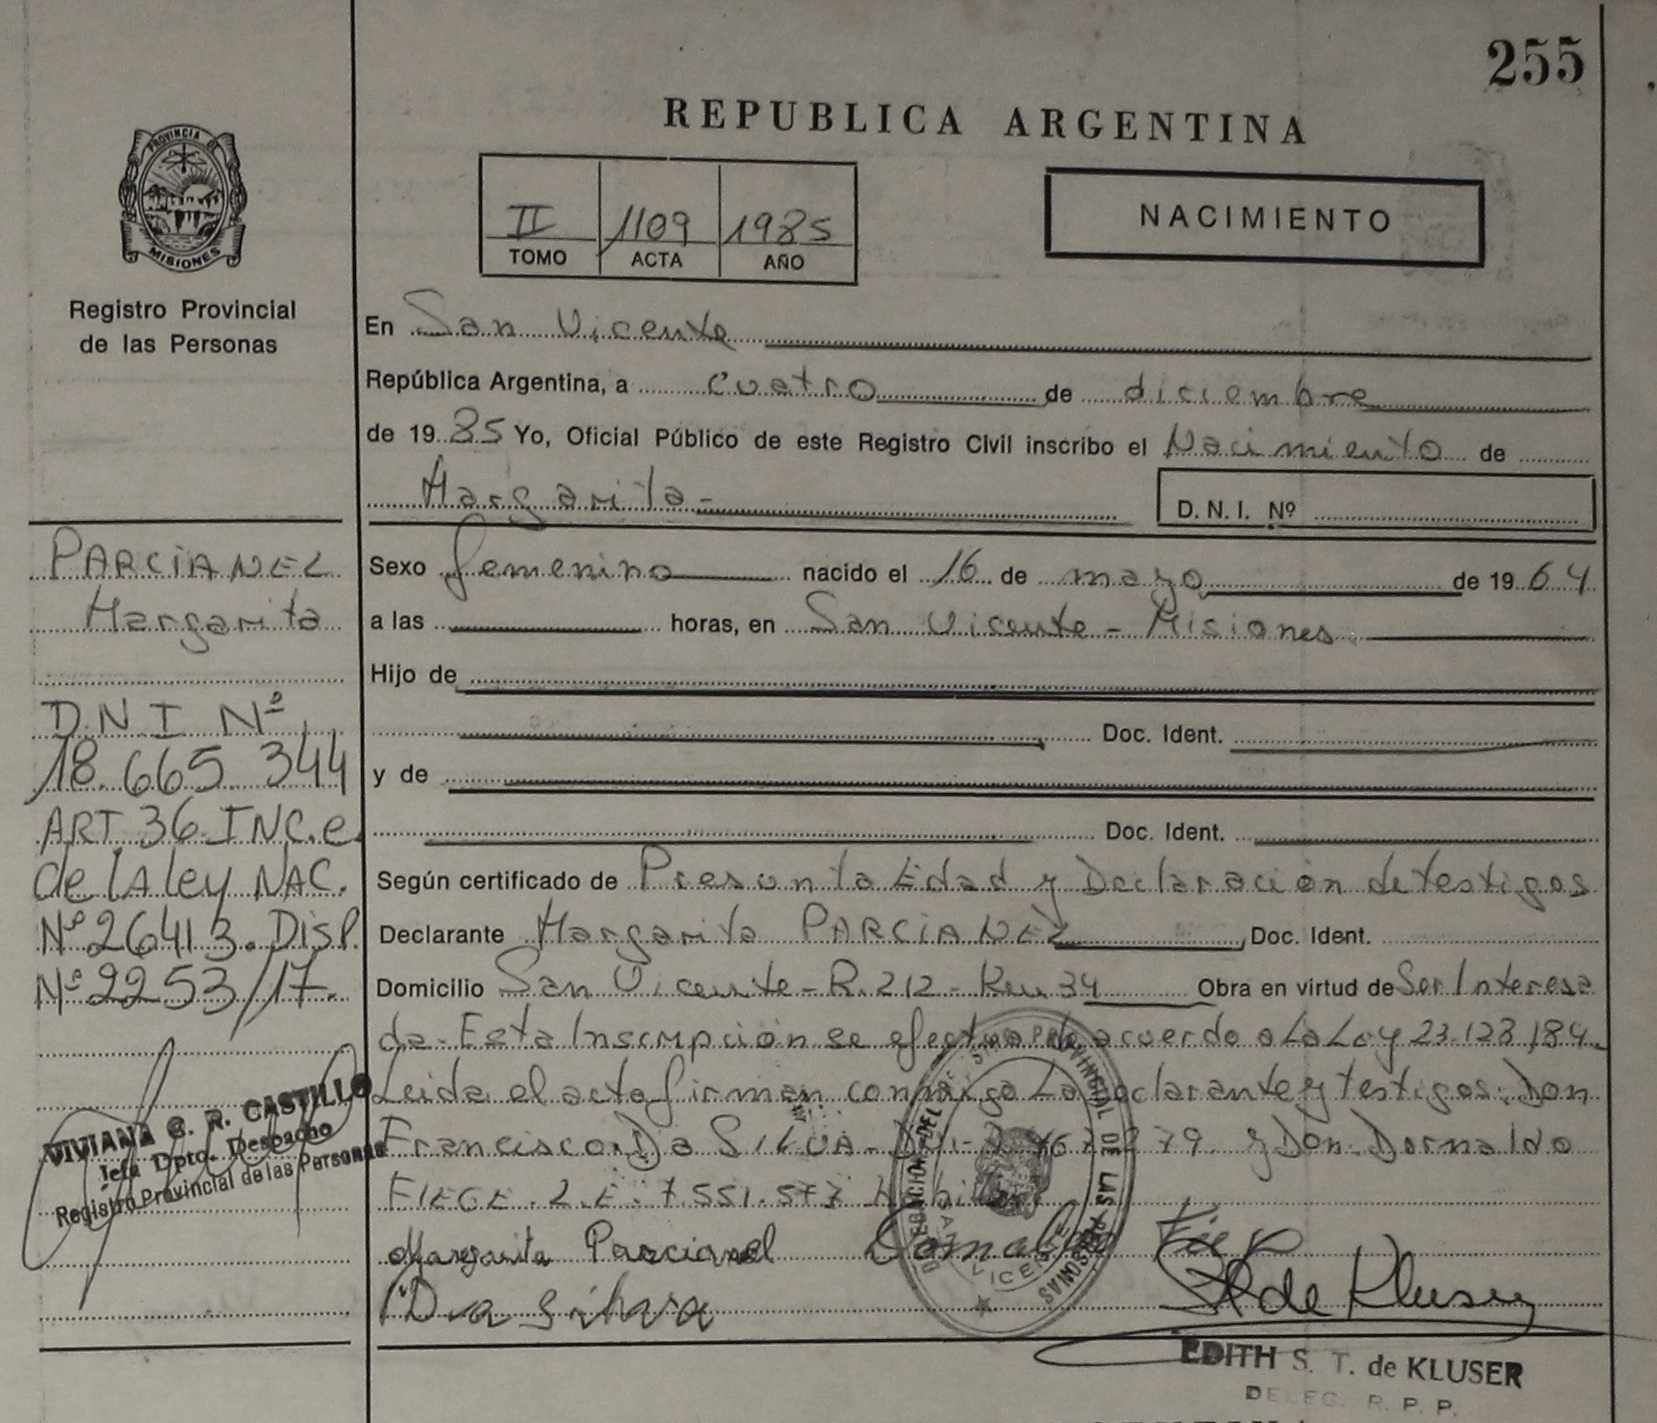 255
REPUBLICA ARGENTINA
PROVINCIA DE
MISIONES
Registro Provincial
de las Personas
II 1109 1985
TOMO ACTA AÑO
NACIMIENTO
En San Vicente
República Argentina, a cuatro de diciembre
de 1985 Yo, Oficial Público de este Registro Civil inscribo el Nacimiento de
Margarita- D. N. I. Nº
PARCIANEL
Margarita
D.N.I Nº
18.665.344
ART 36 INC.e
de LA ley NAC.
Nº 26413. DISP.
Nº 2253/17.
VIVIANA C. R. CASTILLO
Jefa Dpto. Despacho
Registro Provincial de las Personas
Sexo femenino nacido el 16 de mayo de 1964
a las horas, en San Vicente - Misiones
Hijo de
Doc. Ident.
y de
Doc. Ident.
Según certificado de Presunta Edad y Declaración de testigos
Declarante Margarita PARCIANEL Doc. Ident.
Domicilio San Vicente - R. 212 - Km 34 Obra en virtud de Ser Interesa
da. Esta Inscripción se efectua de acuerdo a La Ley 23.128/84.
Leida el acta firman conmigo La Declarante y testigos: Don
Francisco Da SILVA - y Don Dornaldo
FIEGE. L.E. 7.551.573
Margarita Parcianel Dornaldo
Da Silva de Kluser
EDITH S. T. de KLUSER
DELEG. R. P. P.